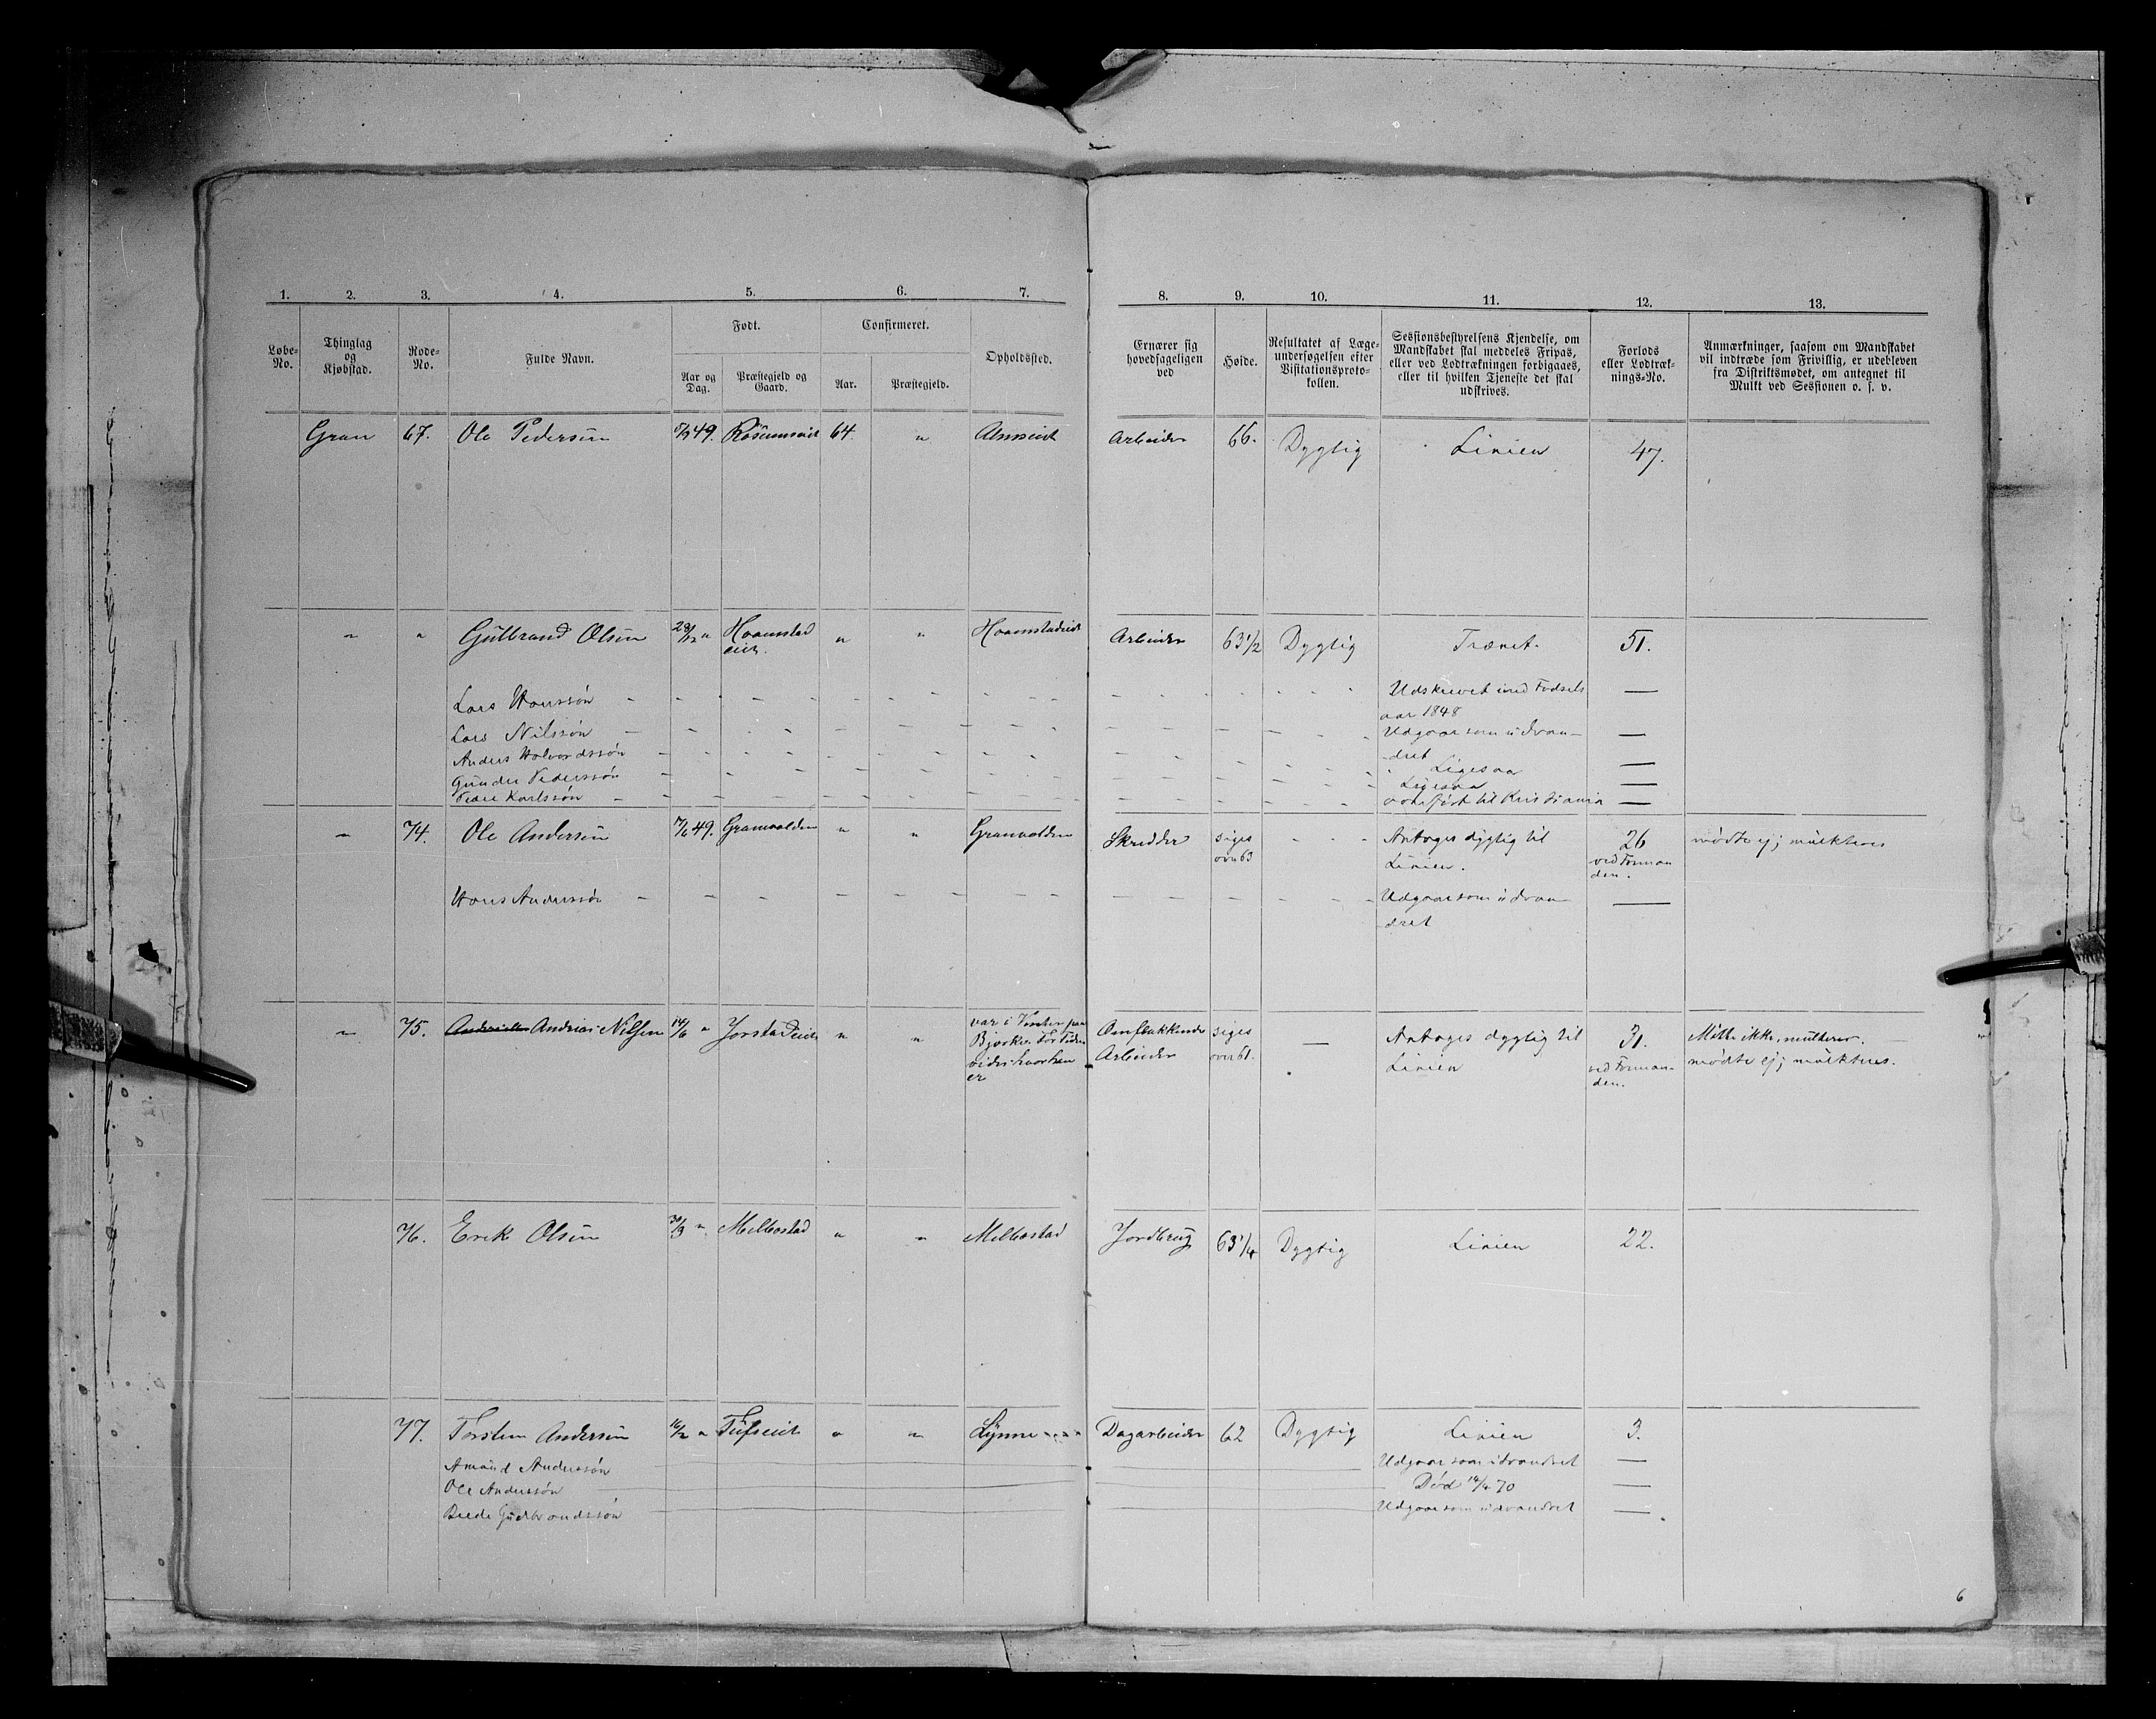 1. 2. 3. 4. 5. 6. 7. 8. 9. 10. 11. 12. 13.
Løbe-No.
Thinglag og Kjøbstad.
Rode-No.
Fulde Navn.
Født.
Aar og Dag.
Præstegjeld og Gaard.
Confirmeret.
Aar.
Præstegjeld.
Opholdssted.
Ernærer sig hovedsageligen ved
Høide.
Resultatet af Læge-undersøgelsen efter Visitationsproto-kollen.
Sessionsbestyrelsens Kjendelse, om Mandskabet skal meddeles Fripas, eller ved Lodtrækningen forbigaaes, eller til hvilken Tjeneste det skal udskrives.
Forlods eller Lodtræk-nings-No.
Anmærkninger, saasom om Mandskabet vil indtræde som Frivillig, er udebleven fra Distriktsmødet, om antegnet til Mulkt ved Sessionen o. s. v.
Gran 67. Ole Pedersen 49. 64 " Arbeider 66. Dygtig Linien 47.
" " Gulbrand Olsen 28/12 " Hvamstad eie. " " Hvamstadeie Arbeider 63 1/2 Dygtig Trænet. 51.
Lars Hanssøn - - - Udskrevet med Fødsels —
aar 1848
Lars Nilssøn - - - Udgaar som udvan- —
dret
Anders Halvordssøn - - - Ligesaa —
Gunder Pederssøn - - - Ligesaa —
Peder Karlssøn - - - overført til Kristiania —
" 74. Ole Andersen 49. Granvolden " " Granvolden Skredder siges Antages dygtig til 26 mødte ej; mulkteres
over 63 Linien. ved Forman
den.
Hans Anderssøn - - - Udgaar som udvan- —
dret
" 75. Andrias Nilsen 14/6 " Jorstadeie " " var i Vinter paa Omflakkende siges — Antages dygtig til 31. Mødte ikke, mulkteres.
Bjerke. For Tiden Arbeider over 61. Linien ved Forman- mødte ej; mulkteres.
vides hvor han den.
er
76. Erik Olsen 30/3 " Melbostad " " Melbostad Jordbrug 63 1/4 Dygtig Linien 22.
77. Torsten Andersen 16/2 " " " Lynne Dagarbeider 62 Dygtig Linien 3.
Amund Anderssøn Udgaar som udvandret —
Ole Anderssøn Død 14/4 70 —
Brede Gudbrandssøn Udgaar som udvandret —
6